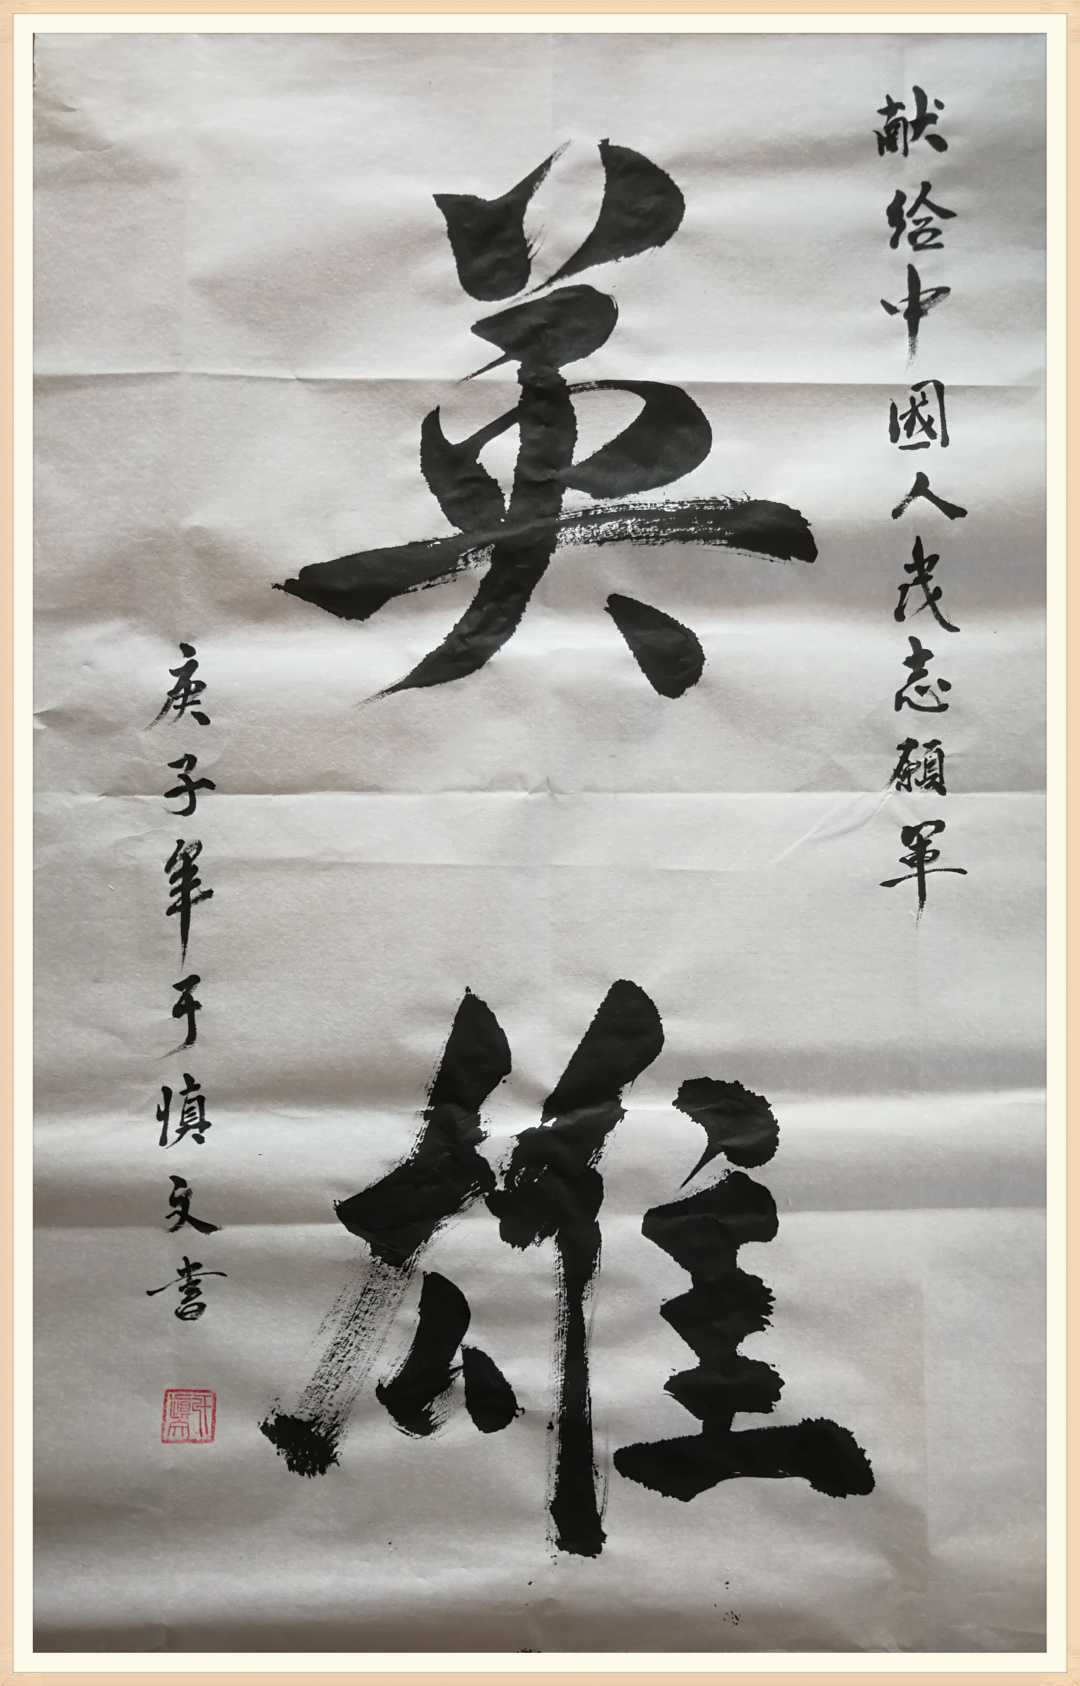 献给中國人民志願軍
英雄
庚子年于慎文書